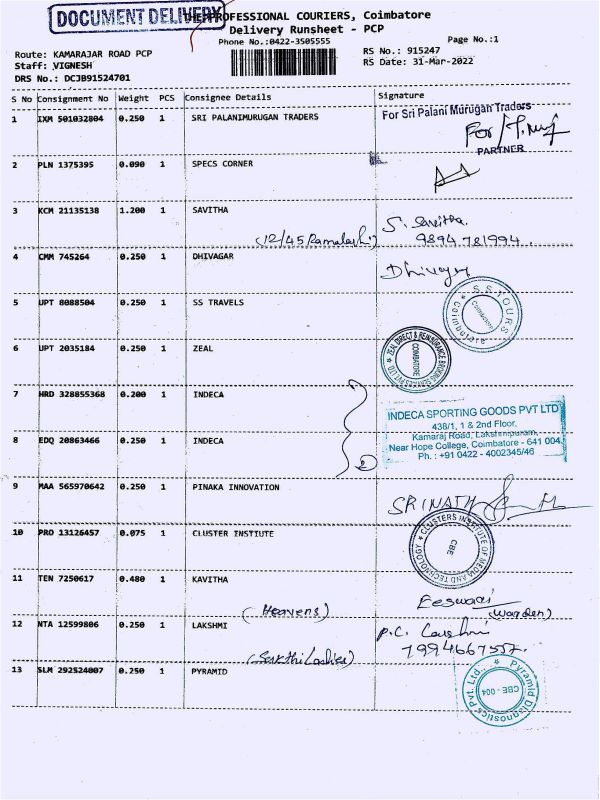 DOCUMENT DELIVERY
THE PROFESSIONAL COURIERS, Coimbatore
Delivery Runsheet - PCP
Phone No.:0422-3505555
Page No.:1
Route: KAMARAJAR ROAD PCP
RS No.: 915247
Staff: VIGNESH
RS Date: 31-Mar-2022
DRS No.: DCJB91524701
S No Consignment No Weight PCS Consignee Details Signature
1 IXM 501032804 0.250 1 SRI PALANIMURUGAN TRADERS
For Sri Palani Murugan Traders
For
PARTNER
2 PLN 1375395 0.090 1 SPECS CORNER
3 KCM 21135138 1.200 1 SAVITHA
S. Savitha.
9894781994.
4 CMM 745264 0.250 1 DHIVAGAR
5 UPT 8088504 0.250 1 SS TRAVELS
S.S TOURS
Coimbatore
6 UPT 2035184 0.250 1 ZEAL
COIMBATORE
7 HRD 328855368 0.200 1 INDECA
8 EDQ 20863466 0.250 1 INDECA
2
INDECA SPORTING GOODS PVT LTD
438/1, 1 & 2nd Floor,
Kamaraj Road, Lakshmipuram,
Near Hope College, Coimbatore - 641 004.
Ph. : +91 0422 - 4002345/46
9 MAA 565970642 0.250 1 PINAKA INNOVATION
SRINATH
10 PRO 13126457 0.075 1 CLUSTER INSTIUTE
CLUSTERS INSTITUTE OF MEDIA AND TECHNOLOGY
CBE
11 TEN 7250617 0.480 1 KAVITHA
(Heavens)
Eeswari
(Warden)
12 NTA 12599806 0.250 1 LAKSHMI
(Sakthi Ladies)
P.C. Lakshmi
7994667557.
13 SLM 292524007 0.250 1 PYRAMID
Pyramid Diagnostics Pvt. Ltd.
CBE - 004